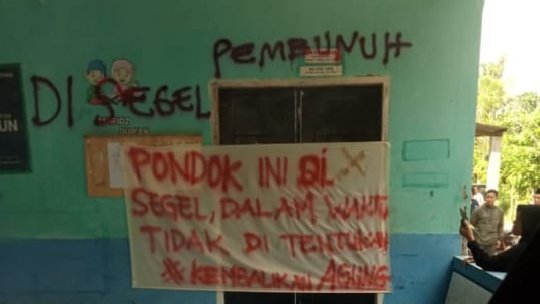 PEMBUNUH
DI SEGEL
UN
QUR'AN
PONDOK INI DI
SEGEL, DALAM WAKTU
TIDAK DI TENTUKAN
# KEMBALIKAN AGUNG